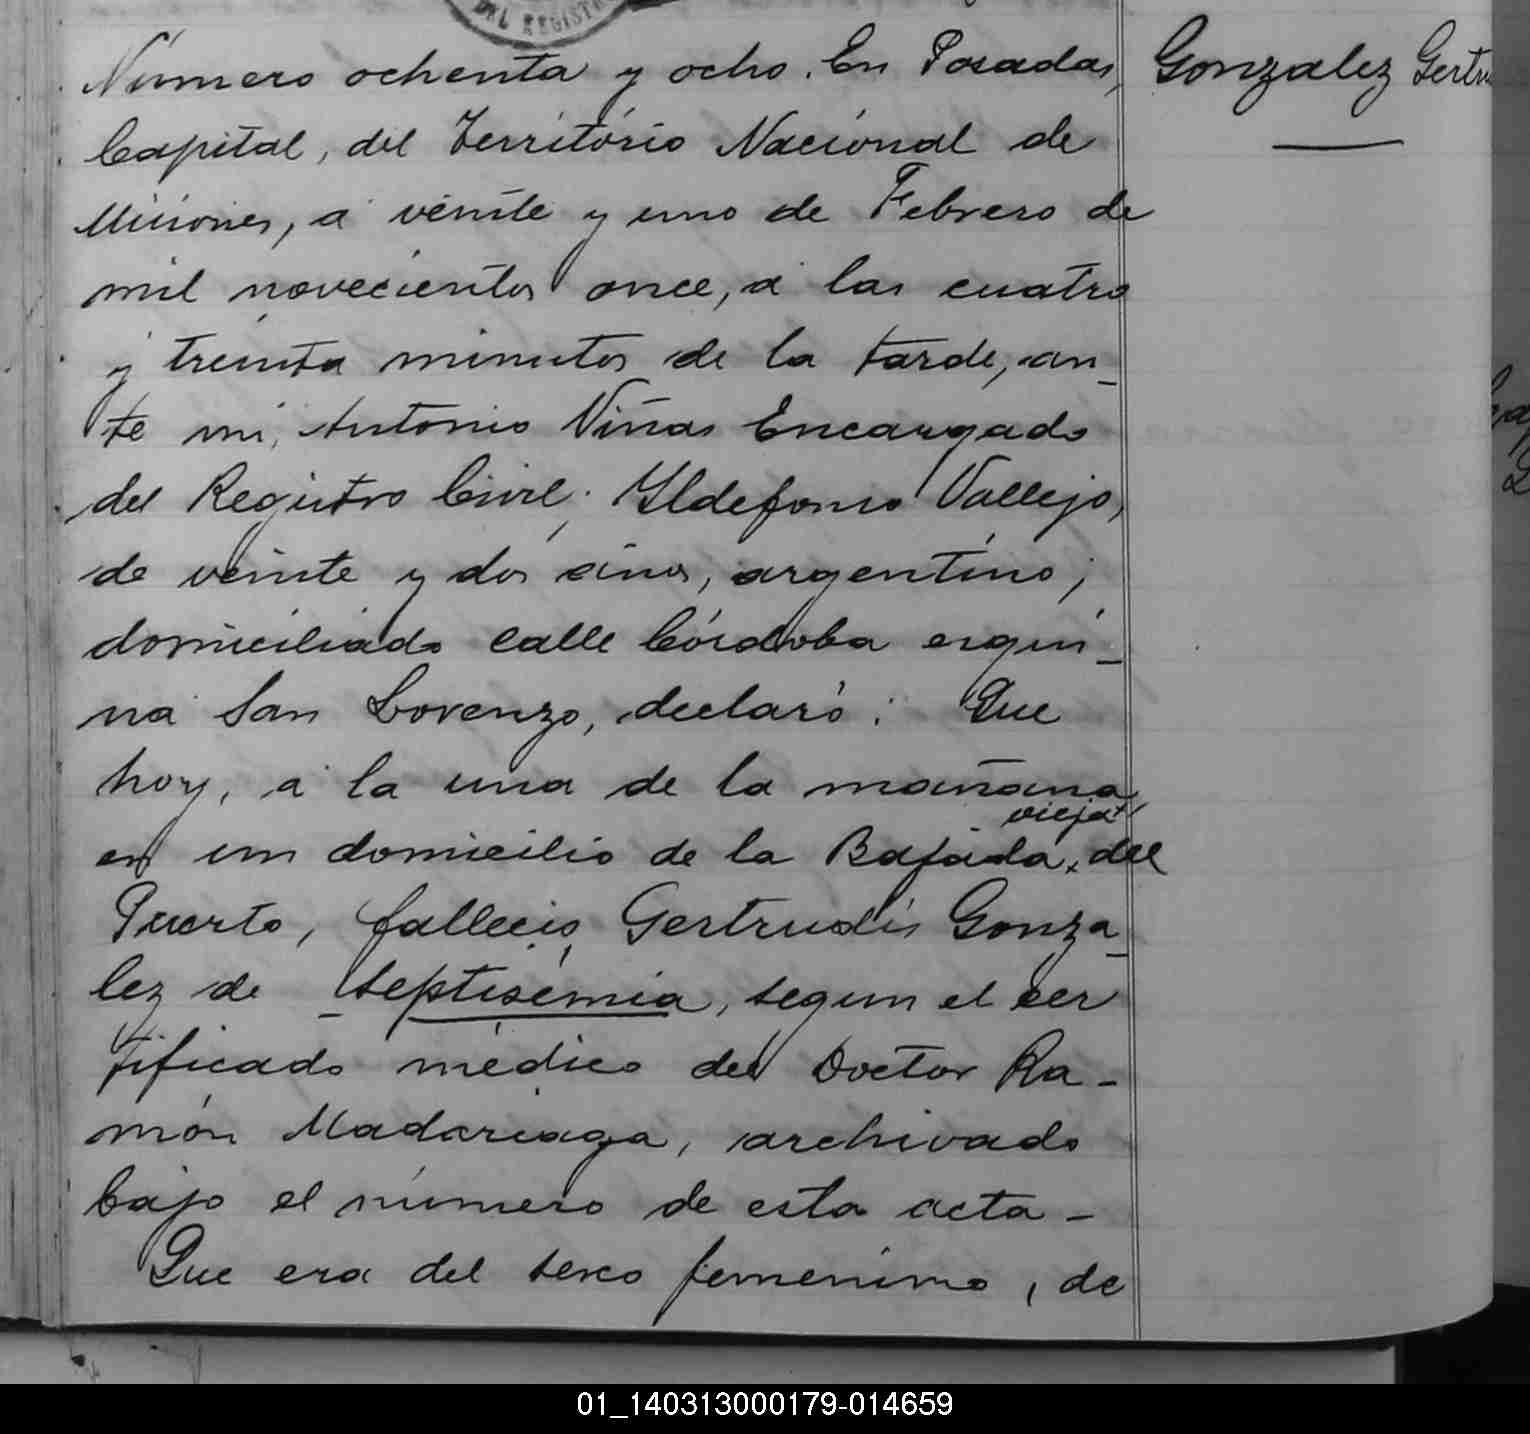 DEL REGISTRO
Número ochenta y ocho. En Posadas,
Gonzalez Gertru
Capital, del Territorio Nacional de
Misiones, á veinte y uno de Febrero de
mil novecientos once, á las cuatro
y treinta minutos de la tarde, an_
te mi, Antonio Viñas Encargado
del Registro Civil; Yldefonso Vallejo,
de veinte y dos años, argentino;
domiciliado calle Córdoba esqui_
na San Lorenzo, declaró: Que
hoy, á la una de la mañana
vieja
en un domicilio de la Bajada, del
Puerto, falleció Gertrudis Gonza_
lez de septisémia, segun el cer
tificado médico del Doctor Ra-
món Madariaga, archivado
bajo el número de esta acta-
Que era del sexo femenino, de
01_140313000179-014659